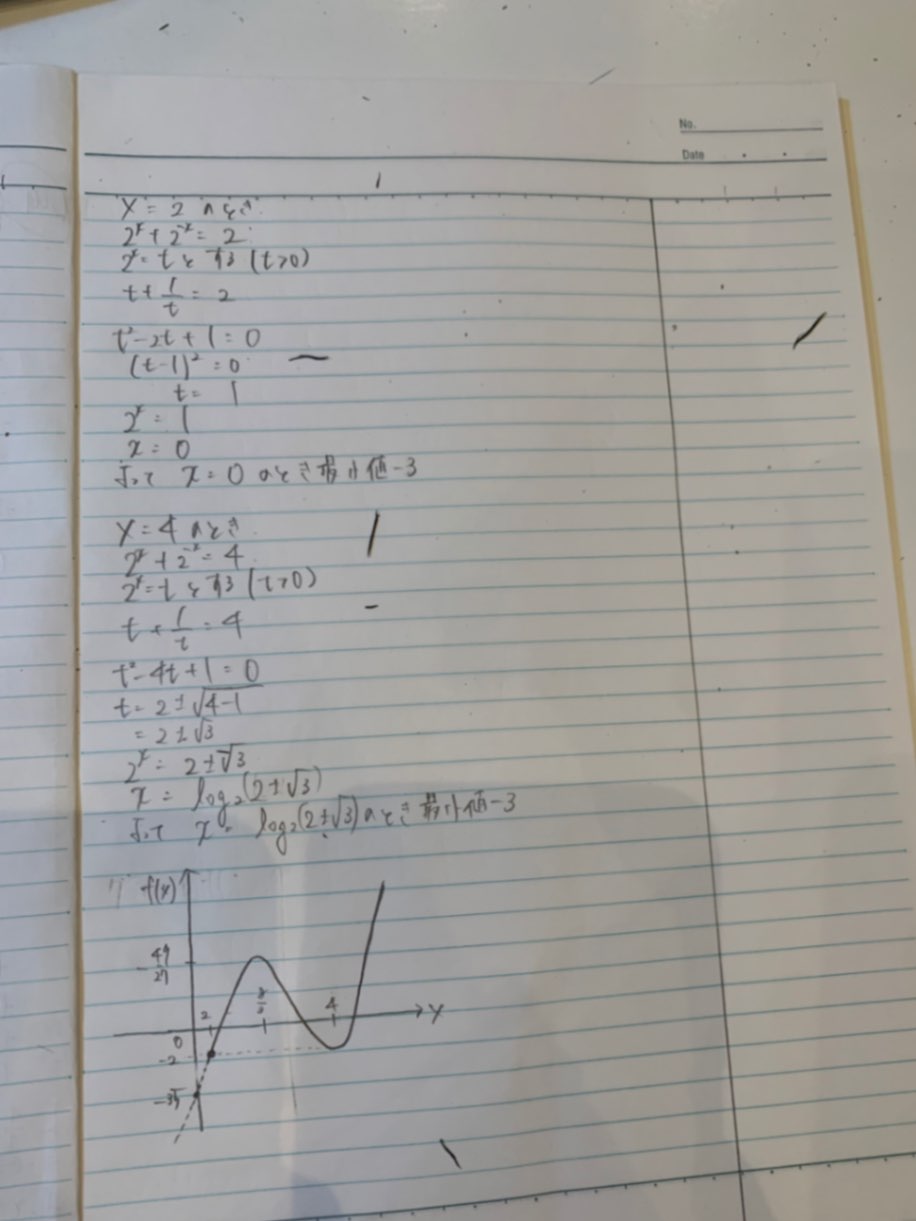 No.
Date
Y = 2 のとき
2^x + 2^-x = 2
2^x = t とする (t>0)
t + 1/t = 2
t² - 2t + 1 = 0
(t-1)² = 0
t = 1
2^x = 1
x = 0
よって x = 0 のとき最小値 -3
Y = 4 のとき
2^x + 2^-x = 4
2^x = t とする (t>0)
t + 1/t = 4
t² - 4t + 1 = 0
t = 2 ± √4-1
= 2 ± √3
2^x = 2 ± √3
x = log₂(2 ± √3)
よって x = log₂(2 ± √3) のとき最小値 -3
2
4
Y
0
-2